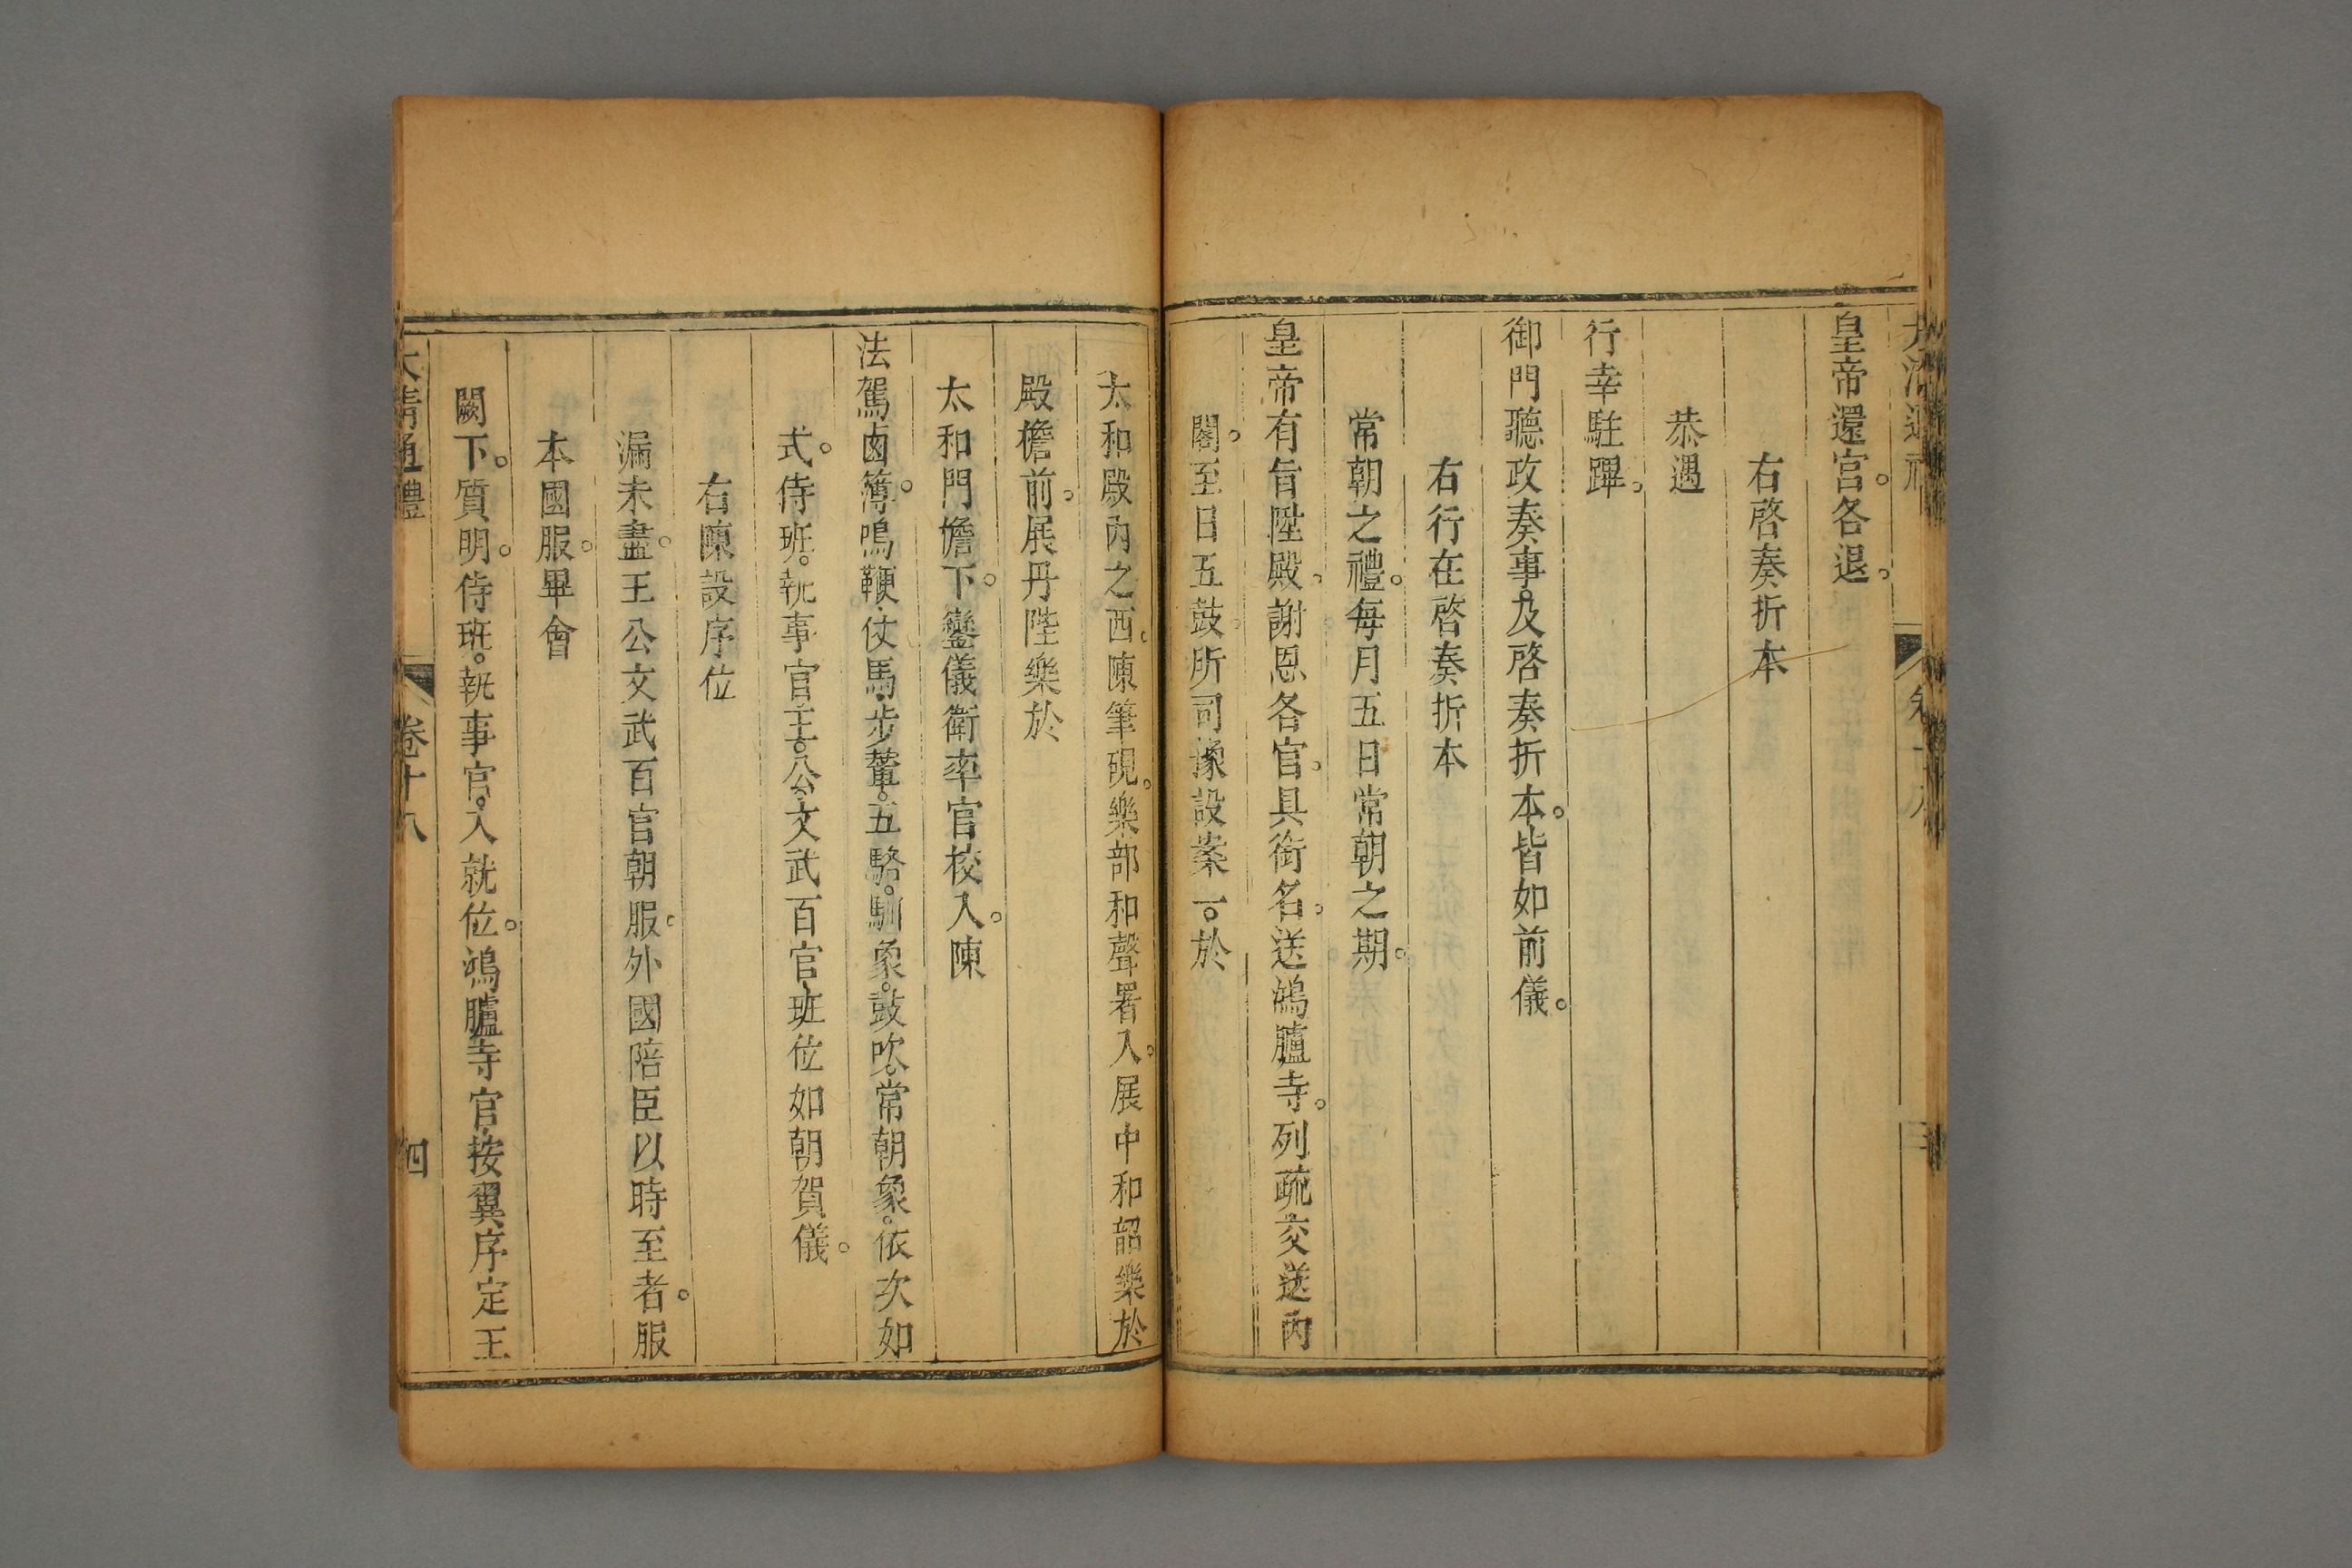 皇帝還宮。各退。
右啓奏折本
恭遇
行幸駐蹕。
御門聽政奏事。及啓奏折本。皆如前儀。
右行在啓奏折本
常朝之禮。每月五日常朝之期。
皇帝有旨陞殿。謝恩各官。具銜名。送鴻臚寺。列疏交送內
閣。至日五鼓。所司豫設案一。於
太和殿內之西。陳筆硯。樂部和聲署入。展中和韶樂於
殿檐前。展丹陛樂於
太和門檐下。鑾儀衛率官校入。陳
法駕鹵簿。鳴鞭、仗馬、步輦。五駱。馴象。鼓吹。常朝象。依次如
式。侍班。執事官。王公。文武百官、班位如朝賀儀。
右陳設序位
漏未盡。王公文武百官朝服。外國陪臣以時至者。服
本國服。畢會
闕下。質明。侍班。執事官。入就位。鴻臚寺官、按翼序定王
大清通禮 卷十八 四